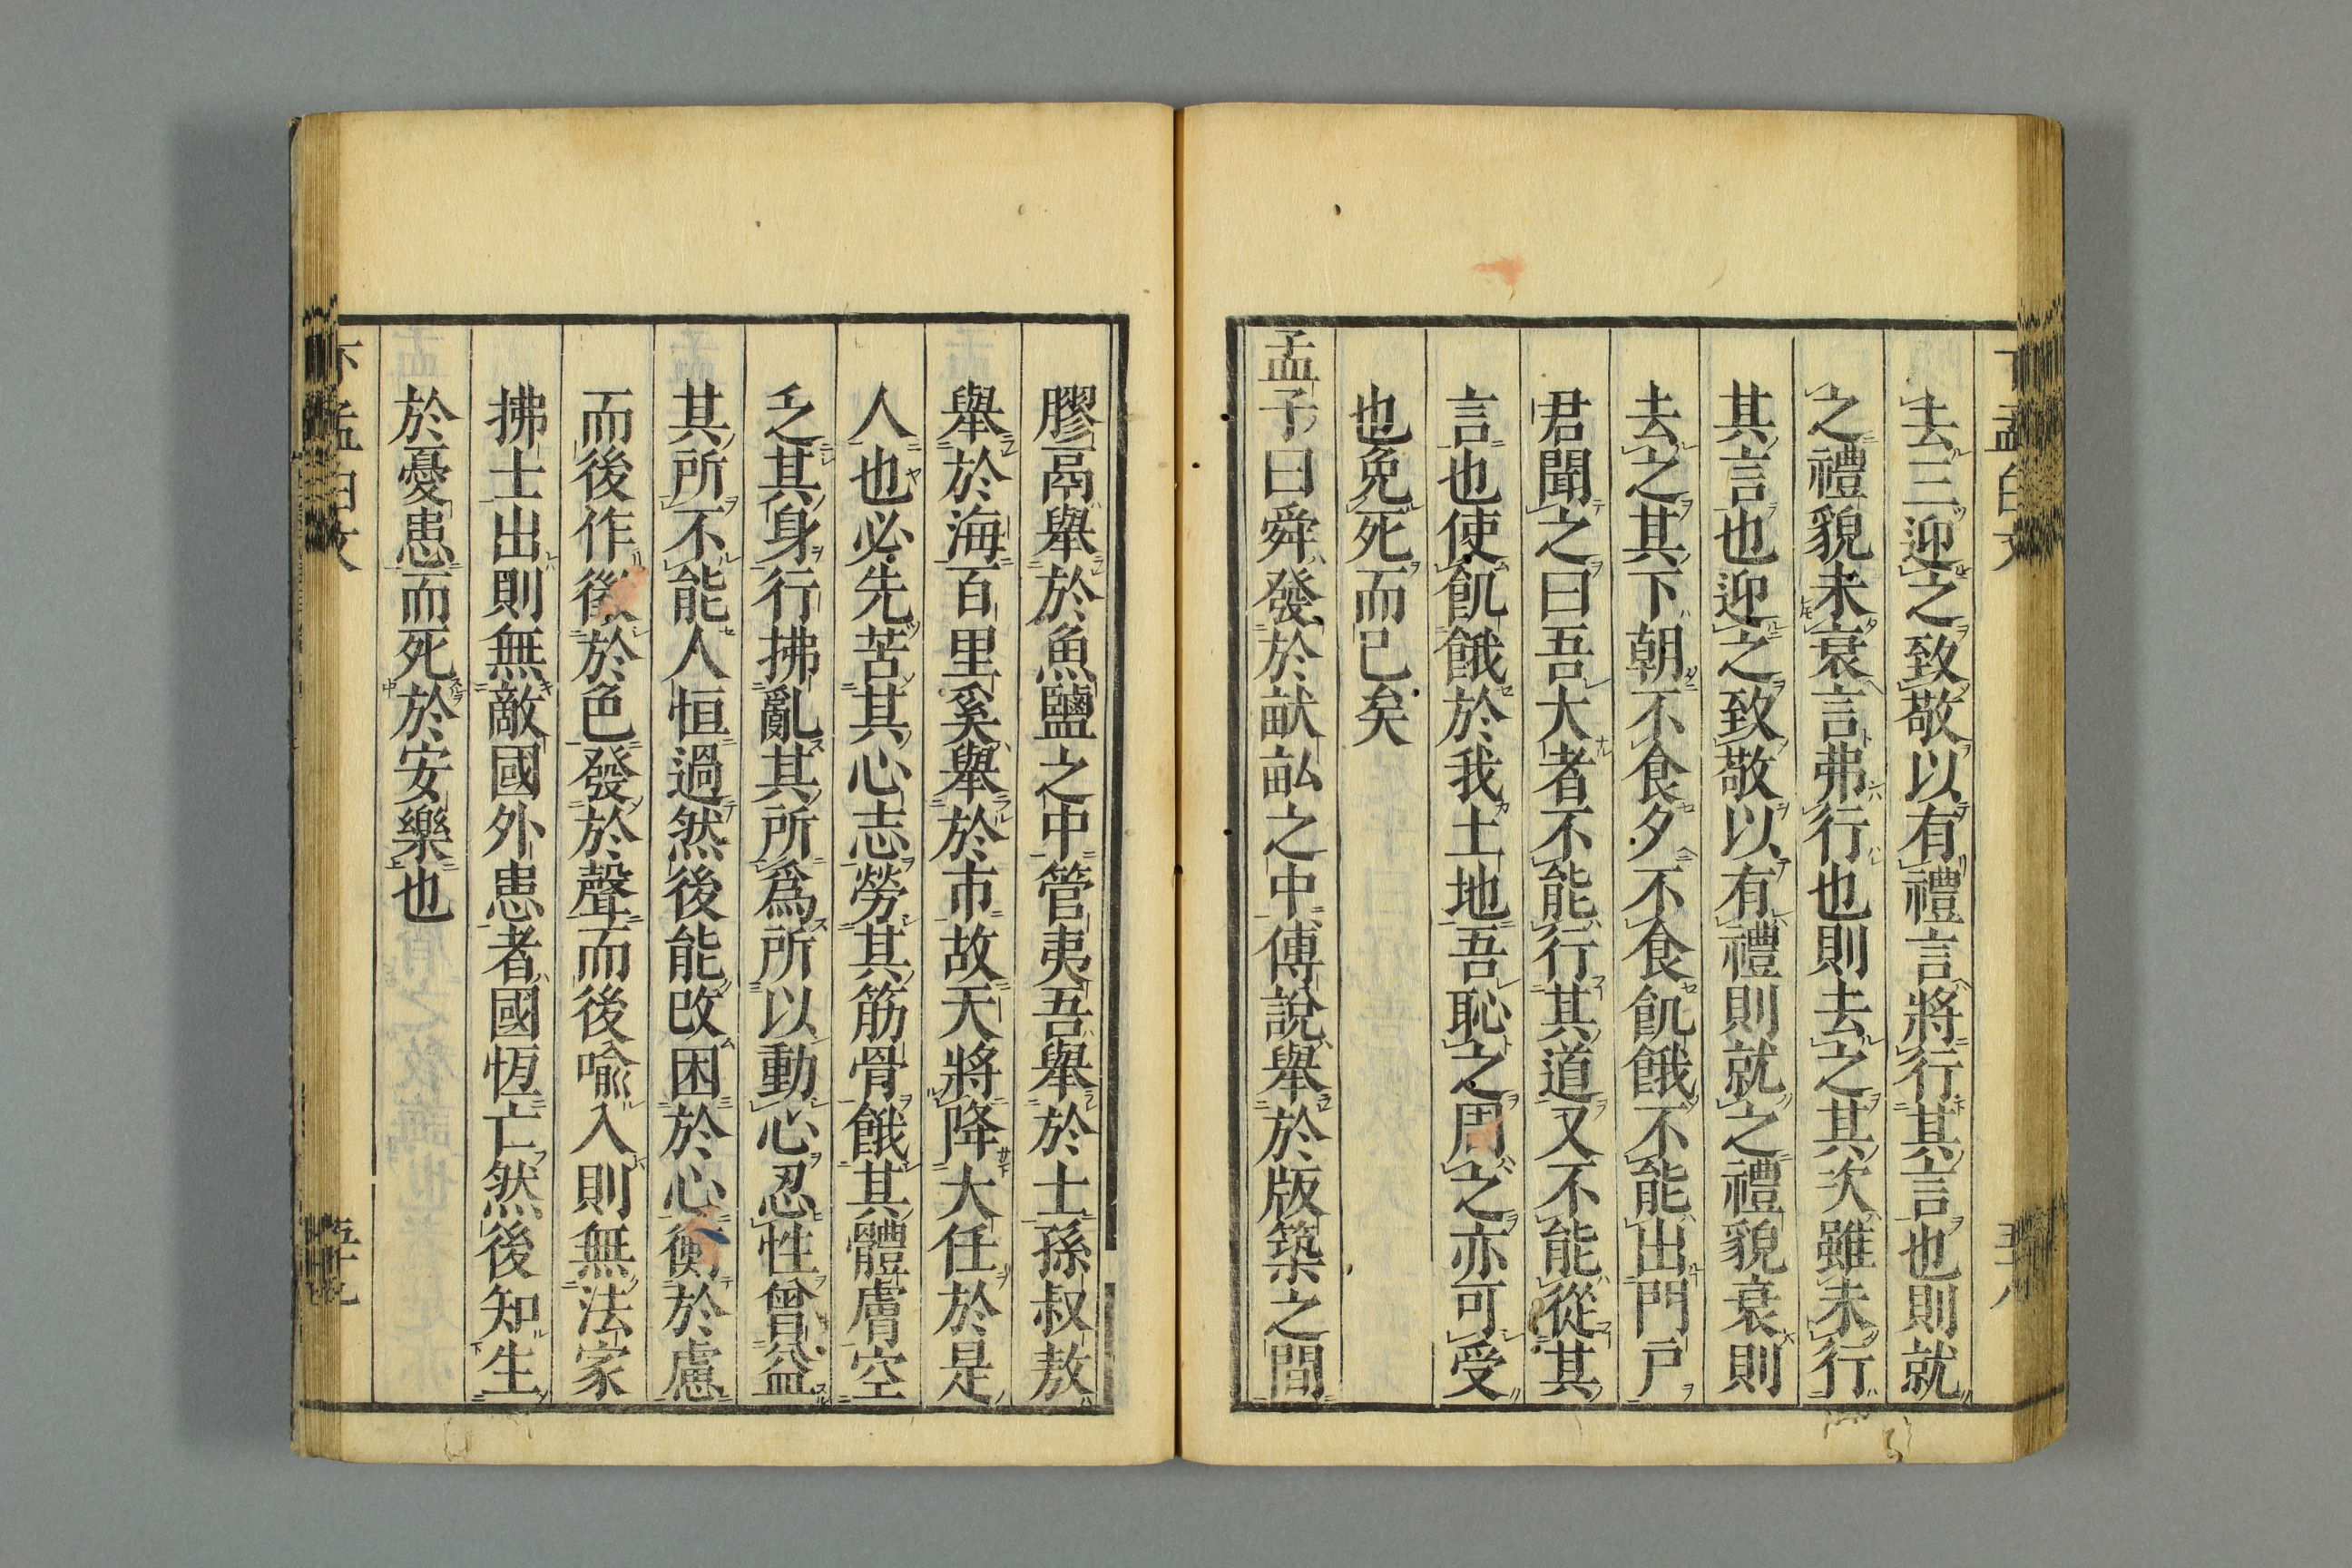 去三迎之致敬以有禮言將行其言也則就
之禮貌未衰言弗行也則去之其次雖未行
其言也迎之致敬以有禮則就之禮貌衰則
去之其下朝不食夕不食飢餓不能出門戸
君聞之曰吾大者不能行其道又不能從其
言也使飢餓於我土地吾恥之周之亦可受
也免死而已矣
孟子曰舜發於畎畝之中傅說舉於版築之間
膠鬲舉於魚鹽之中管夷吾舉於士孫叔敖
舉於海百里奚舉於市故天將降大任於是
人也必先苦其心志勞其筋骨餓其體膚空
乏其身行拂亂其所爲所以動心忍性曾益
其所不能人恒過然後能改困於心衡於慮
而後作徵於色發於聲而後喩入則無法家
拂士出則無敵國外患者國恆亡然後知生
於憂患而死於安樂也